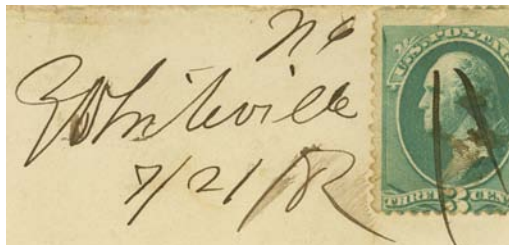 NC
Whiteville
7/21
U.S. POSTAG
THREE 3 CENT